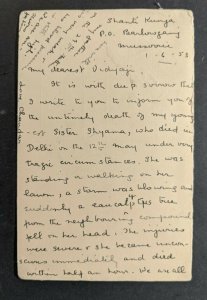 Shanti Kunja
P.O. Barlowganj
Mussoorie
1-6-53
My dearest Vidyaji
It is with deep sorrow that
I write to you to inform you of
the untimely death of my young
-est Sister Shyama, who died in
Delhi on the 12th May under very
tragic circumstances. She was
standing & walking on her
lawn, a storm was blowing and
suddenly a eucaliptus tree
from the neighbouring compound
fell on her head. The injuries
were severe & she became uncon-
scious immediately and died
within half an hour. We are all